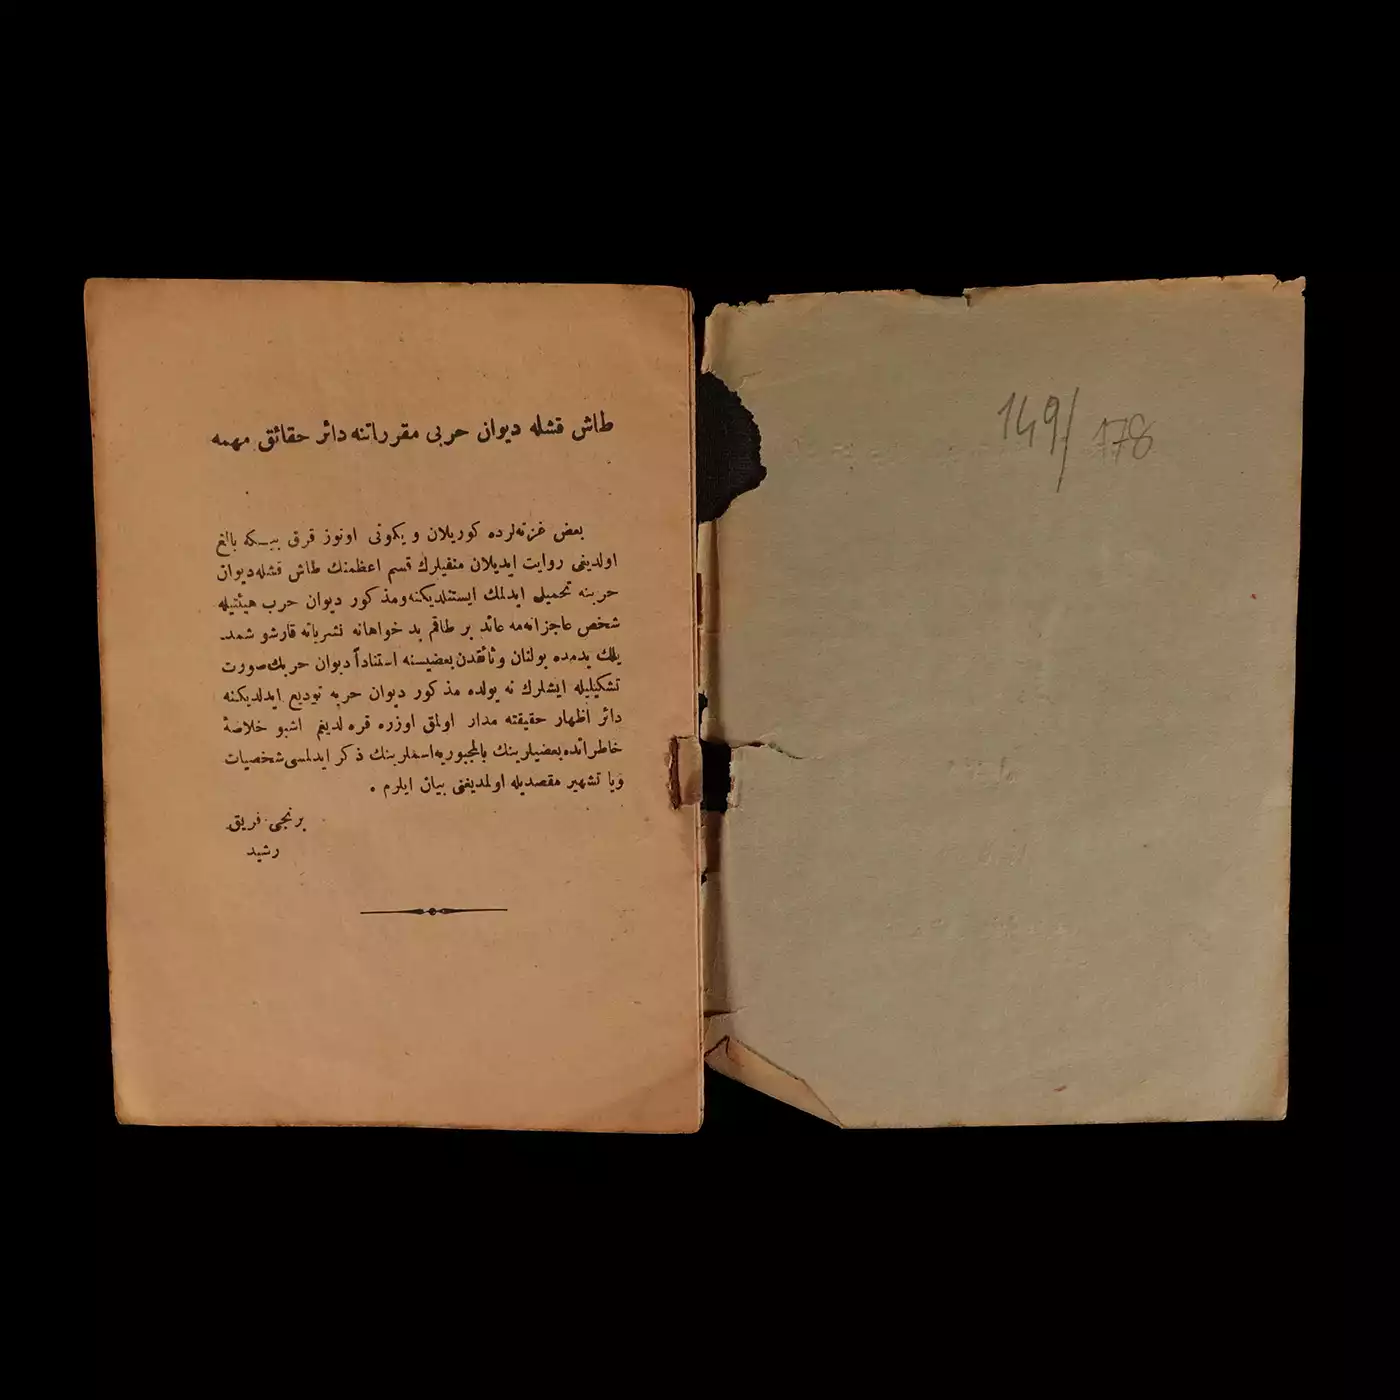 طاش قشله ديوان حربی مقرراتنه دائر حقائق مهمه
بعض غزته‌لرده كوريلان و يكونی اونوز قرق بيـكه بالغ
اولديغی روايت ايديلان منفيلرك قسم اعظمنك طاش قشله ديوان
حربنه تحميل ايدلمك ايستنلديكنه ومذكور ديوان حرب هيئتيله
شخص عاجزانه‌مه عائد بر طاقم بد خواهانه نشرياته قارشو شمد
يلك يدمده بولنان وثائقدن بعضيسنه استناداً ديوان حربك صورت
تشكيليله ايشلرك نه يولده مذكور ديوان حربه توديع ايدلديكنه
دائر اظهار حقيقته مدار اولمق اوزره قره لديغم اشبو خلاصۀ
خاطراتده بعضيلرينك بالمجبوريه اسملرينك ذكر ايدلمسی شخصيات
ويا تشهير مقصديله اولمديغنی بيان ايلرم .
برنجی فريق
رشيد
149/ 178